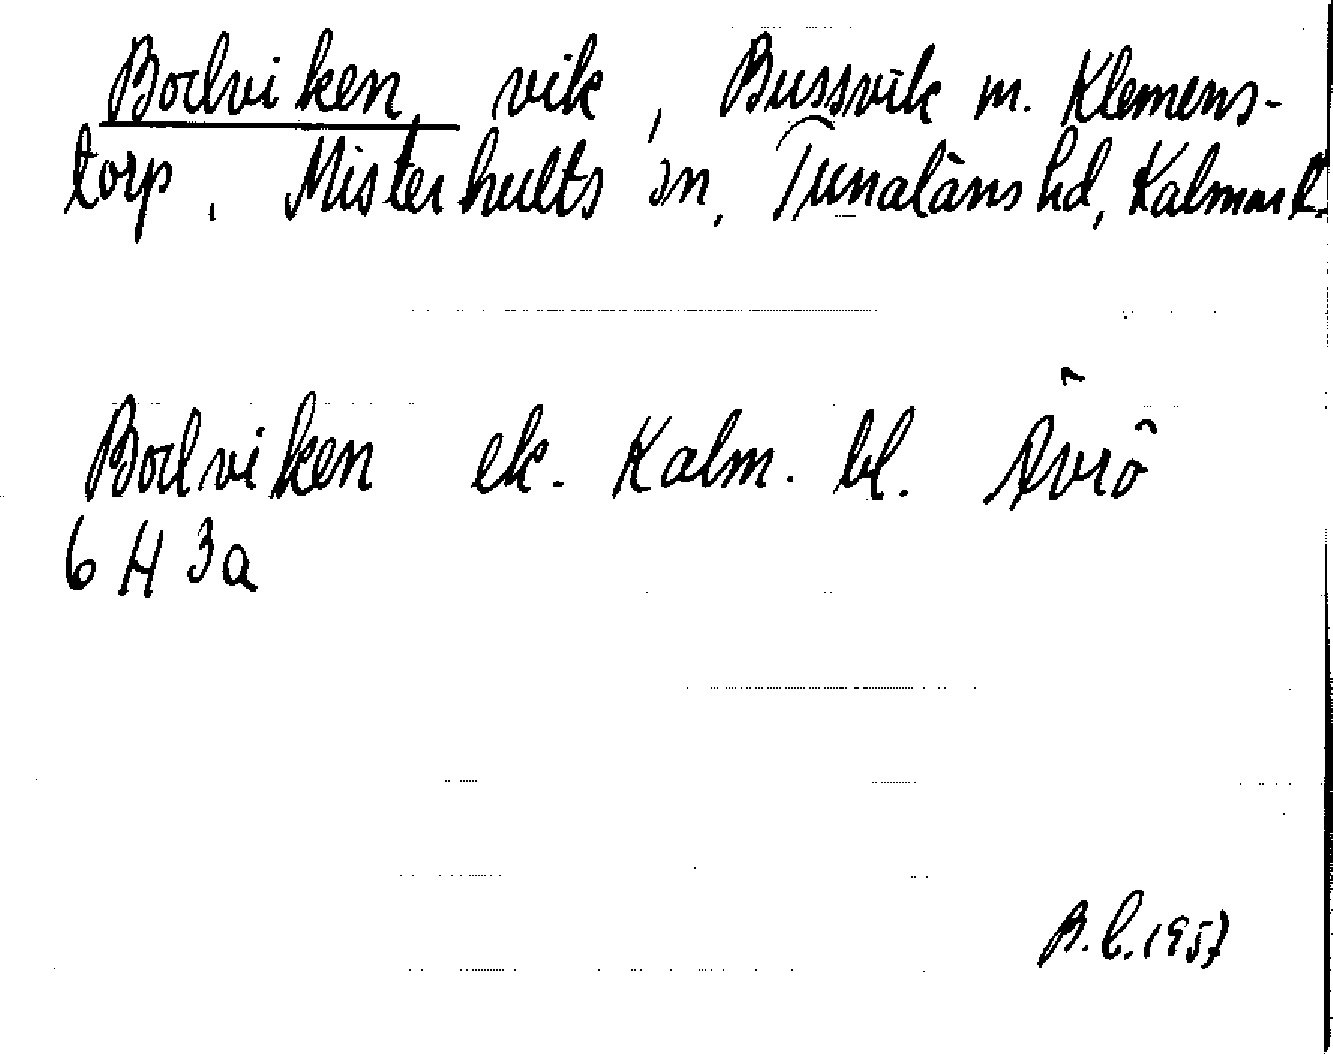 Bodviken, vik, Bussvik m. Klemens-
torp, Misterhults sn, Tunaläns hd, Kalmar l.
Bodviken ek. Kalm. bl. Ävrö
6 H 3a
B.C. 1957